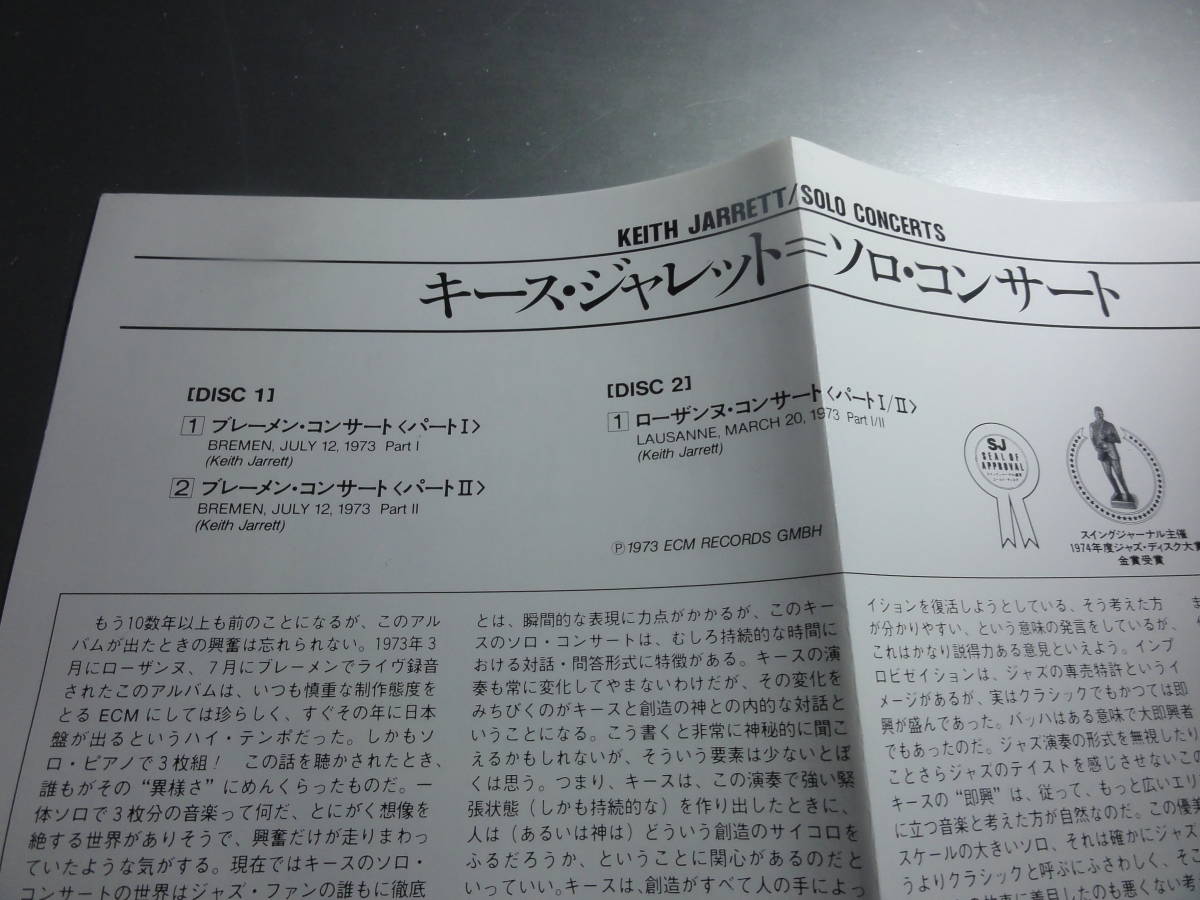 KEITH JARRETT/SOLO CONCERTS
キース・ジャレット=ソロ・コンサート
[DISC 1]
1 ブレーメン・コンサート〈パートI〉
BREMEN, JULY 12, 1973 Part I
(Keith Jarrett)
2 ブレーメン・コンサート〈パートII〉
BREMEN, JULY 12, 1973 Part II
(Keith Jarrett)
[DISC 2]
1 ローザンヌ・コンサート〈パートI/II〉
LAUSANNE, MARCH 20, 1973 Part I/II
(Keith Jarrett)
Ⓟ1973 ECM RECORDS GMBH
SJ
SEAL OF
APPROVAL
スイングジャーナル主催
1974年度ジャズ・ディスク大賞
金賞受賞
もう10数年以上も前のことになるが、このアル
バムが出たときの興奮は忘れられない。1973年3
月にローザンヌ、7月にブレーメンでライヴ録音
されたこのアルバムは、いつも慎重な制作態度を
とる ECM にしては珍らしく、すぐその年に日本
盤が出るというハイ・テンポだった。しかもソ
ロ・ピアノで3枚組! この話を聴かされたとき、
誰もがその“異様さ”にめんくらったものだ。一
体ソロで3枚分の音楽って何だ、とにがく想像を
絶する世界がありそうで、興奮だけが走りまわっ
ていたような気がする。現在ではキースのソロ・
コンサートの世界はジャズ・ファンの誰もに徹底
とは、瞬間的な表現に力点がかかるが、このキー
スのソロ・コンサートは、むしろ持続的な時間に
おける対話・問答形式に特徴がある。キースの演
奏も常に変化してやまないわけだが、その変化を
みちびくのがキースと創造の神との内的な対話と
いうことになる。こう書くと非常に神秘的に聞こ
えるかもしれないが、そういう要素は少ないとぼ
くは思う。つまり、キースは、この演奏で強い緊
張状態（しかも持続的な）を作り出したときに、
人は（あるいは神は）どういう創造のサイコロを
ふるだろうか、ということに関心があるのだと
いっていい。キースは、創造がすべて人の手によっ
イションを復活しようとしている、そう考えた方
が分かりやすい、という意味の発言をしているが、
これはかなり説得力ある意見といえよう。インプ
ロビゼイションは、ジャズの専売特許というイ
メージがあるが、実はクラシックでもかつては即
興が盛んであった。バッハはある意味で大即興者
でもあったのだ。ジャズ演奏の形式を無視したり
ことさらジャズのテイストを感じさせないこの
キースの“即興”は、従って、もっと広いエリ
に立つ音楽と考えた方が自然なのだ。この優美
スケールの大きいソロ、それは確かにジャズ
うよりクラシックと呼ぶにふさわしく、そこ
に着目したのも悪くない考
ま